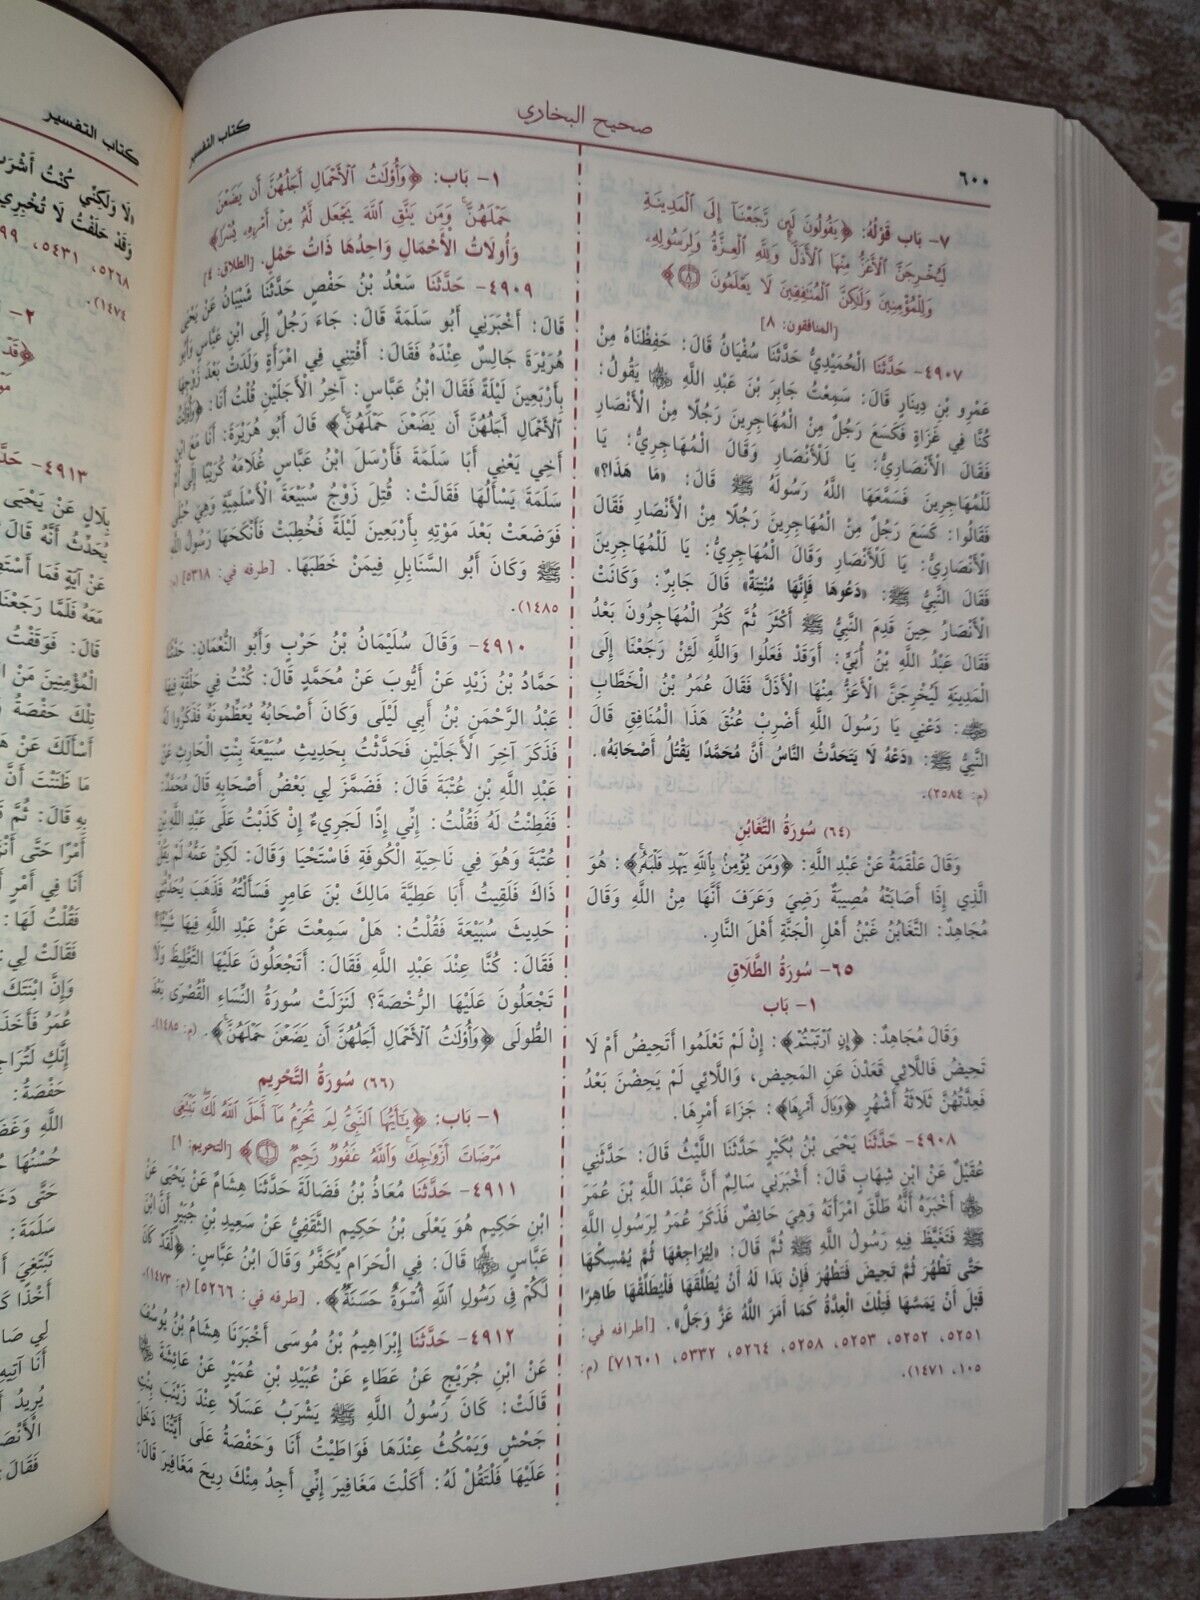 صحيح البخاري
٦٠٠
كتاب التفسير
٧- بَاب قَوْلُهُ: ﴿يَقُولُونَ لَئِن رَّجَعْنَآ إِلَى ٱلْمَدِينَةِ
لَيُخْرِجَنَّ ٱلْأَعَزُّ مِنْهَا ٱلْأَذَلَّ وَلِلَّهِ ٱلْعِزَّةُ وَلِرَسُولِهِۦ
وَلِلْمُؤْمِنِينَ وَلَٰكِنَّ ٱلْمُنَٰفِقِينَ لَا يَعْلَمُونَ ۝٨﴾
[المنافقون: ٨]
٤٩٠٧- حَدَّثَنَا الْحُمَيْدِيُّ حَدَّثَنَا سُفْيَانُ قَالَ: حَفِظْنَاهُ مِنْ
عَمْرِو بْنِ دِينَارٍ قَالَ: سَمِعْتُ جَابِرَ بْنَ عَبْدِ اللَّهِ ﵄ يَقُولُ:
كُنَّا فِي غَزَاةٍ فَكَسَعَ رَجُلٌ مِنْ الْمُهَاجِرِينَ رَجُلًا مِنْ الْأَنْصَارِ
فَقَالَ الْأَنْصَارِيُّ: يَا لَلْأَنْصَارِ وَقَالَ الْمُهَاجِرِيُّ: يَا
لَلْمُهَاجِرِينَ فَسَمَّعَهَا اللَّهُ رَسُولَهُ ﷺ قَالَ: «مَا هَذَا؟»
فَقَالُوا: كَسَعَ رَجُلٌ مِنْ الْمُهَاجِرِينَ رَجُلًا مِنْ الْأَنْصَارِ فَقَالَ
الْأَنْصَارِيُّ: يَا لَلْأَنْصَارِ وَقَالَ الْمُهَاجِرِيُّ: يَا لَلْمُهَاجِرِينَ
فَقَالَ النَّبِيُّ ﷺ: «دَعُوهَا فَإِنَّهَا مُنْتِنَةٌ» قَالَ جَابِرٌ: وَكَانَتْ
الْأَنْصَارُ حِينَ قَدِمَ النَّبِيُّ ﷺ أَكْثَرَ ثُمَّ كَثُرَ الْمُهَاجِرُونَ بَعْدُ
فَقَالَ عَبْدُ اللَّهِ بْنُ أُبَيٍّ: أَوَقَدْ فَعَلُوا وَاللَّهِ لَئِنْ رَجَعْنَا إِلَى
الْمَدِينَةِ لَيُخْرِجَنَّ الْأَعَزُّ مِنْهَا الْأَذَلَّ فَقَالَ عُمَرُ بْنُ الْخَطَّابِ
﵁: دَعْنِي يَا رَسُولَ اللَّهِ أَضْرِبْ عُنُقَ هَذَا الْمُنَافِقِ قَالَ
النَّبِيُّ ﷺ: «دَعْهُ لَا يَتَحَدَّثُ النَّاسُ أَنَّ مُحَمَّدًا يَقْتُلُ أَصْحَابَهُ».
(م: ٢٥٨٤).
(٦٤) سُورَةُ التَّغَابُنِ
وَقَالَ عَلْقَمَةُ عَنْ عَبْدِ اللَّهِ: ﴿وَمَن يُؤْمِنۢ بِٱللَّهِ يَهْدِ قَلْبَهُۥ﴾: هُوَ
الَّذِي إِذَا أَصَابَتْهُ مُصِيبَةٌ رَضِيَ وَعَرَفَ أَنَّهَا مِنْ اللَّهِ وَقَالَ
مُجَاهِدٌ: التَّغَابُنُ غَبْنُ أَهْلِ الْجَنَّةِ أَهْلَ النَّارِ.
٦٥- سُورَةُ الطَّلَاقِ
١- بَاب
وَقَالَ مُجَاهِدٌ: ﴿إِنِ ٱرْتَبْتُمْ﴾: إِنْ لَمْ تَعْلَمُوا أَتَحِيضُ أَمْ لَا
تَحِيضُ فَاللَّائِي قَعَدْنَ عَنِ الْمَحِيضِ، وَاللَّائِي لَمْ يَحِضْنَ بَعْدُ
فَعِدَّتُهُنَّ ثَلَاثَةُ أَشْهُرٍ ﴿وَبَالَ أَمْرِهَا﴾: جَزَاءَ أَمْرِهَا.
٤٩٠٨- حَدَّثَنَا يَحْيَى بْنُ بُكَيْرٍ حَدَّثَنَا اللَّيْثُ قَالَ: حَدَّثَنِي
عُقَيْلٌ عَنْ ابْنِ شِهَابٍ قَالَ: أَخْبَرَنِي سَالِمٌ أَنَّ عَبْدَ اللَّهِ بْنَ عُمَرَ
﵄ أَخْبَرَهُ أَنَّهُ طَلَّقَ امْرَأَتَهُ وَهِيَ حَائِضٌ فَذَكَرَ عُمَرُ لِرَسُولِ اللَّهِ
ﷺ فَتَغَيَّظَ فِيهِ رَسُولُ اللَّهِ ﷺ ثُمَّ قَالَ: «لِيُرَاجِعْهَا ثُمَّ يُمْسِكْهَا
حَتَّى تَطْهُرَ ثُمَّ تَحِيضَ فَتَطْهُرَ فَإِنْ بَدَا لَهُ أَنْ يُطَلِّقَهَا فَلْيُطَلِّقْهَا طَاهِرًا
قَبْلَ أَنْ يَمَسَّهَا فَتِلْكَ الْعِدَّةُ كَمَا أَمَرَ اللَّهُ عَزَّ وَجَلَّ». [أطرافه في:
٥٢٥١، ٥٢٥٢، ٥٢٥٣، ٥٢٥٨، ٥٢٦٤، ٥٣٣٢، ٧١٦٠١] (م:
١٠٥، ١٤٧١).
١- بَاب: ﴿وَأُوْلَٰتُ ٱلْأَحْمَالِ أَجَلُهُنَّ أَن يَضَعْنَ
حَمْلَهُنَّ وَمَن يَتَّقِ ٱللَّهَ يَجْعَل لَّهُۥ مِنْ أَمْرِهِۦ يُسْرًا﴾
وَأُولَاتُ الْأَحْمَالِ وَاحِدُهَا ذَاتُ حَمْلٍ. [الطلاق: ٤]
٤٩٠٩- حَدَّثَنَا سَعْدُ بْنُ حَفْصٍ حَدَّثَنَا شَيْبَانُ عَنْ يَحْيَى
قَالَ: أَخْبَرَنِي أَبُو سَلَمَةَ قَالَ: جَاءَ رَجُلٌ إِلَى ابْنِ عَبَّاسٍ وَأَبُو
هُرَيْرَةَ جَالِسٌ عِنْدَهُ فَقَالَ: أَفْتِنِي فِي امْرَأَةٍ وَلَدَتْ بَعْدَ زَوْجِهَا
بِأَرْبَعِينَ لَيْلَةً فَقَالَ ابْنُ عَبَّاسٍ: آخِرُ الْأَجَلَيْنِ قُلْتُ أَنَا: ﴿وَأُوْلَٰتُ
ٱلْأَحْمَالِ أَجَلُهُنَّ أَن يَضَعْنَ حَمْلَهُنَّ﴾ قَالَ أَبُو هُرَيْرَةَ: أَنَا مَعَ ابْنِ
أَخِي يَعْنِي أَبَا سَلَمَةَ فَأَرْسَلَ ابْنُ عَبَّاسٍ غُلَامَهُ كُرَيْبًا إِلَى أُمِّ
سَلَمَةَ يَسْأَلُهَا فَقَالَتْ: قُتِلَ زَوْجُ سُبَيْعَةَ الْأَسْلَمِيَّةِ وَهِيَ حُبْلَى
فَوَضَعَتْ بَعْدَ مَوْتِهِ بِأَرْبَعِينَ لَيْلَةً فَخُطِبَتْ فَأَنْكَحَهَا رَسُولُ اللَّهِ
ﷺ وَكَانَ أَبُو السَّنَابِلِ فِيمَنْ خَطَبَهَا. [طرفه في: ٥٣١٨] (م:
١٤٨٥).
٤٩١٠- وَقَالَ سُلَيْمَانُ بْنُ حَرْبٍ وَأَبُو النُّعْمَانِ: حَدَّثَنَا
حَمَّادُ بْنُ زَيْدٍ عَنْ أَيُّوبَ عَنْ مُحَمَّدٍ قَالَ: كُنْتُ فِي حَلْقَةٍ فِيهَا
عَبْدُ الرَّحْمَنِ بْنُ أَبِي لَيْلَى وَكَانَ أَصْحَابُهُ يُعَظِّمُونَهُ فَذَكَرُوا لَهُ
فَذَكَرَ آخِرَ الْأَجَلَيْنِ فَحَدَّثْتُ بِحَدِيثِ سُبَيْعَةَ بِنْتِ الْحَارِثِ عَنْ
عَبْدِ اللَّهِ بْنِ عُتْبَةَ قَالَ: فَضَمَّزَ لِي بَعْضُ أَصْحَابِهِ قَالَ مُحَمَّدٌ:
فَفَطِنْتُ لَهُ فَقُلْتُ: إِنِّي إِذًا لَجَرِيءٌ إِنْ كَذَبْتُ عَلَى عَبْدِ اللَّهِ بْنِ
عُتْبَةَ وَهُوَ فِي نَاحِيَةِ الْكُوفَةِ فَاسْتَحْيَا وَقَالَ: لَكِنْ عَمُّهُ لَمْ يَقُلْ
ذَاكَ فَلَقِيتُ أَبَا عَطِيَّةَ مَالِكَ بْنَ عَامِرٍ فَسَأَلْتُهُ فَذَهَبَ يُحَدِّثُنِي
حَدِيثَ سُبَيْعَةَ فَقُلْتُ: هَلْ سَمِعْتَ عَنْ عَبْدِ اللَّهِ فِيهَا شَيْئًا؟
فَقَالَ: كُنَّا عِنْدَ عَبْدِ اللَّهِ فَقَالَ: أَتَجْعَلُونَ عَلَيْهَا التَّغْلِيظَ وَلَا
تَجْعَلُونَ عَلَيْهَا الرُّخْصَةَ؟ لَنَزَلَتْ سُورَةُ النِّسَاءِ الْقُصْرَى بَعْدَ
الطُّولَى ﴿وَأُوْلَٰتُ ٱلْأَحْمَالِ أَجَلُهُنَّ أَن يَضَعْنَ حَمْلَهُنَّ﴾. (م: ١٤٨٥).
(٦٦) سُورَةُ التَّحْرِيمِ
١- بَاب: ﴿يَٰٓأَيُّهَا ٱلنَّبِيُّ لِمَ تُحَرِّمُ مَآ أَحَلَّ ٱللَّهُ لَكَ تَبْتَغِى
مَرْضَاتَ أَزْوَٰجِكَ وَٱللَّهُ غَفُورٌ رَّحِيمٌ ۝١﴾ [التحريم: ١]
٤٩١١- حَدَّثَنَا مُعَاذُ بْنُ فَضَالَةَ حَدَّثَنَا هِشَامٌ عَنْ يَحْيَى عَنْ
ابْنِ حَكِيمٍ هُوَ يَعْلَى بْنُ حَكِيمٍ الثَّقَفِيُّ عَنْ سَعِيدِ بْنِ جُبَيْرٍ أَنَّ ابْنَ
عَبَّاسٍ ﵄ قَالَ: فِي الْحَرَامِ يُكَفَّرُ وَقَالَ ابْنُ عَبَّاسٍ: ﴿لَّقَدْ كَانَ
لَكُمْ فِى رَسُولِ ٱللَّهِ أُسْوَةٌ حَسَنَةٌ﴾. [طرفه في: ٥٢٦٦] (م: ١٤٧٣).
٤٩١٢- حَدَّثَنَا إِبْرَاهِيمُ بْنُ مُوسَى أَخْبَرَنَا هِشَامُ بْنُ يُوسُفَ
عَنْ ابْنِ جُرَيْجٍ عَنْ عَطَاءٍ عَنْ عُبَيْدِ بْنِ عُمَيْرٍ عَنْ عَائِشَةَ ﵂
قَالَتْ: كَانَ رَسُولُ اللَّهِ ﷺ يَشْرَبُ عَسَلًا عِنْدَ زَيْنَبَ بِنْتِ
جَحْشٍ وَيَمْكُثُ عِنْدَهَا فَوَاطَيْتُ أَنَا وَحَفْصَةُ عَلَى أَيَّتُنَا دَخَلَ
عَلَيْهَا فَلْتَقُلْ لَهُ: أَكَلْتَ مَغَافِيرَ إِنِّي أَجِدُ مِنْكَ رِيحَ مَغَافِيرَ قَالَ:
كتاب التفسير
«لَا وَلَكِنِّي كُنْتُ أَشْرَبُ
وَقَدْ حَلَفْتُ لَا تُخْبِرِي
٥٢٦٨، ٥٤٣١،
١٤٧٤).
٢-
﴿قَدْ
٤٩١٣- حَدَّثَنَا
بِلَالٍ عَنْ يَحْيَى
يُحَدِّثُ أَنَّهُ قَالَ
عَنْ آيَةٍ فَمَا أَسْتَطِ
مَعَهُ فَلَمَّا رَجَعْنَا
قَالَ: فَوَقَفْتُ
الْمُؤْمِنِينَ مَنْ
تِلْكَ حَفْصَةُ وَ
أَسْأَلَكَ عَنْ هَ
مَا ظَنَنْتَ أَنَّ
بِهِ قَالَ: ثُمَّ قَ
أَمْرًا حَتَّى أَنْزَ
أَنَا فِي أَمْرٍ أَ
فَقُلْتُ لَهَا:
فَقَالَتْ لِي:
وَإِنَّ ابْنَتَكَ
عُمَرُ فَأَخَذَ
إِنَّكِ لَتُرَاجِ
حَفْصَةُ:
اللَّهِ وَغَضَ
حُسْنُهَا
حَتَّى دَخَ
سَلَمَةَ:
تَبْتَغِيَ أَ
أَخْذًا كَ
لِي صَا
أَنَا آتِيهِ
يُرِيدُ أَ
الْأَنْصَ
فَقَالَ: